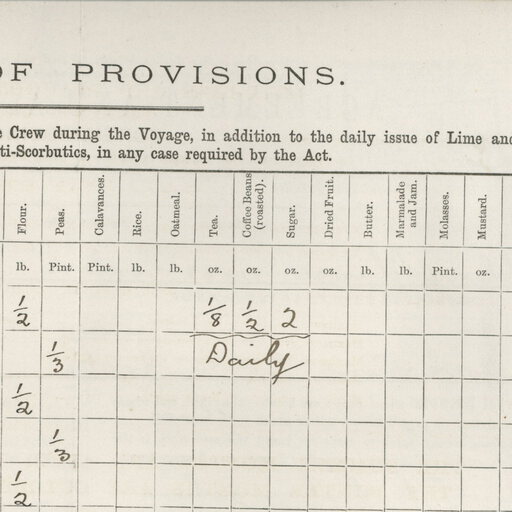 OF PROVISIONS.
Crew during the Voyage, in addition to the daily issue of Lime and
ti-Scorbutics, in any case required by the Act.
Flour. Peas. Calavances. Rice. Oatmeal. Tea. Coffee Beans (roasted). Sugar. Dried Fruit. Butter. Marmalade and Jam. Molasses. Mustard.
lb. Pint. Pint. lb. lb. oz. oz. oz. lb. lb. Pint. oz.
1/2 1/8 1/2 2
1/3 Daily
1/2
1/3
1/2